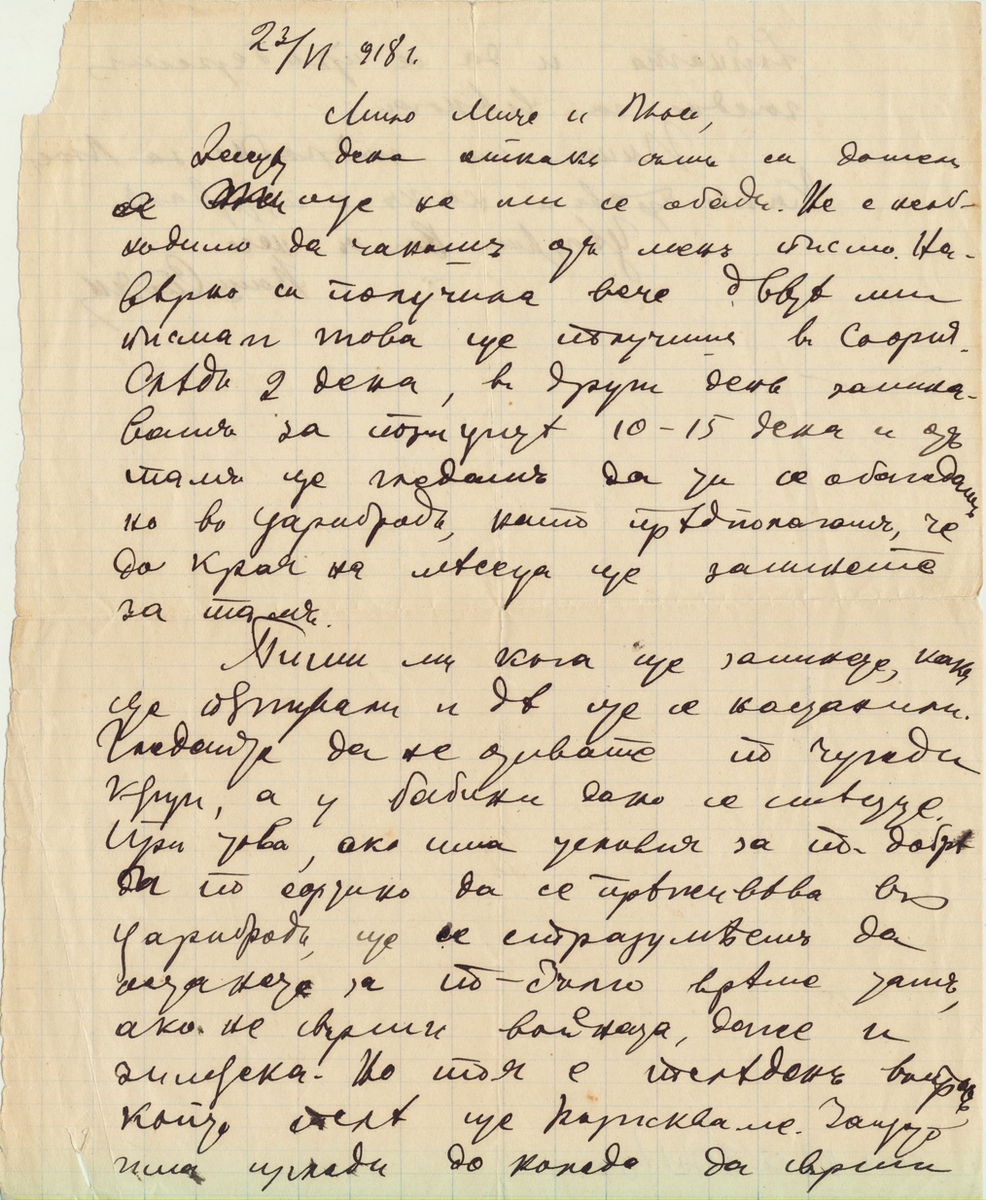 23/VI 918 г.
Мило Миче и
дена откакъ съмъ си дошелъ
още не ми се обади. Не е необ-
ходимо да чакашъ отъ менъ писмо. На-
вѣрно си получила вече двѣтѣ ми
писма и това ще получишъ въ София.
Слѣдъ 2 дена, въ други день замина-
вамъ за 10-15 дена и отъ
тамъ ще гледамъ да ти се обаждамъ
но въ Царибродъ, като прѣдполагамъ, че
до края на мѣсеца ще заминете
за тамъ.
Пиши ми кога ще заминете, какъ
ще пѫтувате и дѣ ще се настаните.
Гледайте да не отивате по чужди
кѫщи, а у бабини дано се смѣстите.
При това, ако има условия за по-добрѣ
да по евтино да се прѣживѣва въ
Царибродъ, ще се споразумѣемъ да
останете за по-дълго врѣме тамъ,
ако не свърши войната, даже и
зимъска. Но тоя е послѣденъ въпросъ
който послѣ ще разискваме. Защото
има изгледи до коледа да свърши